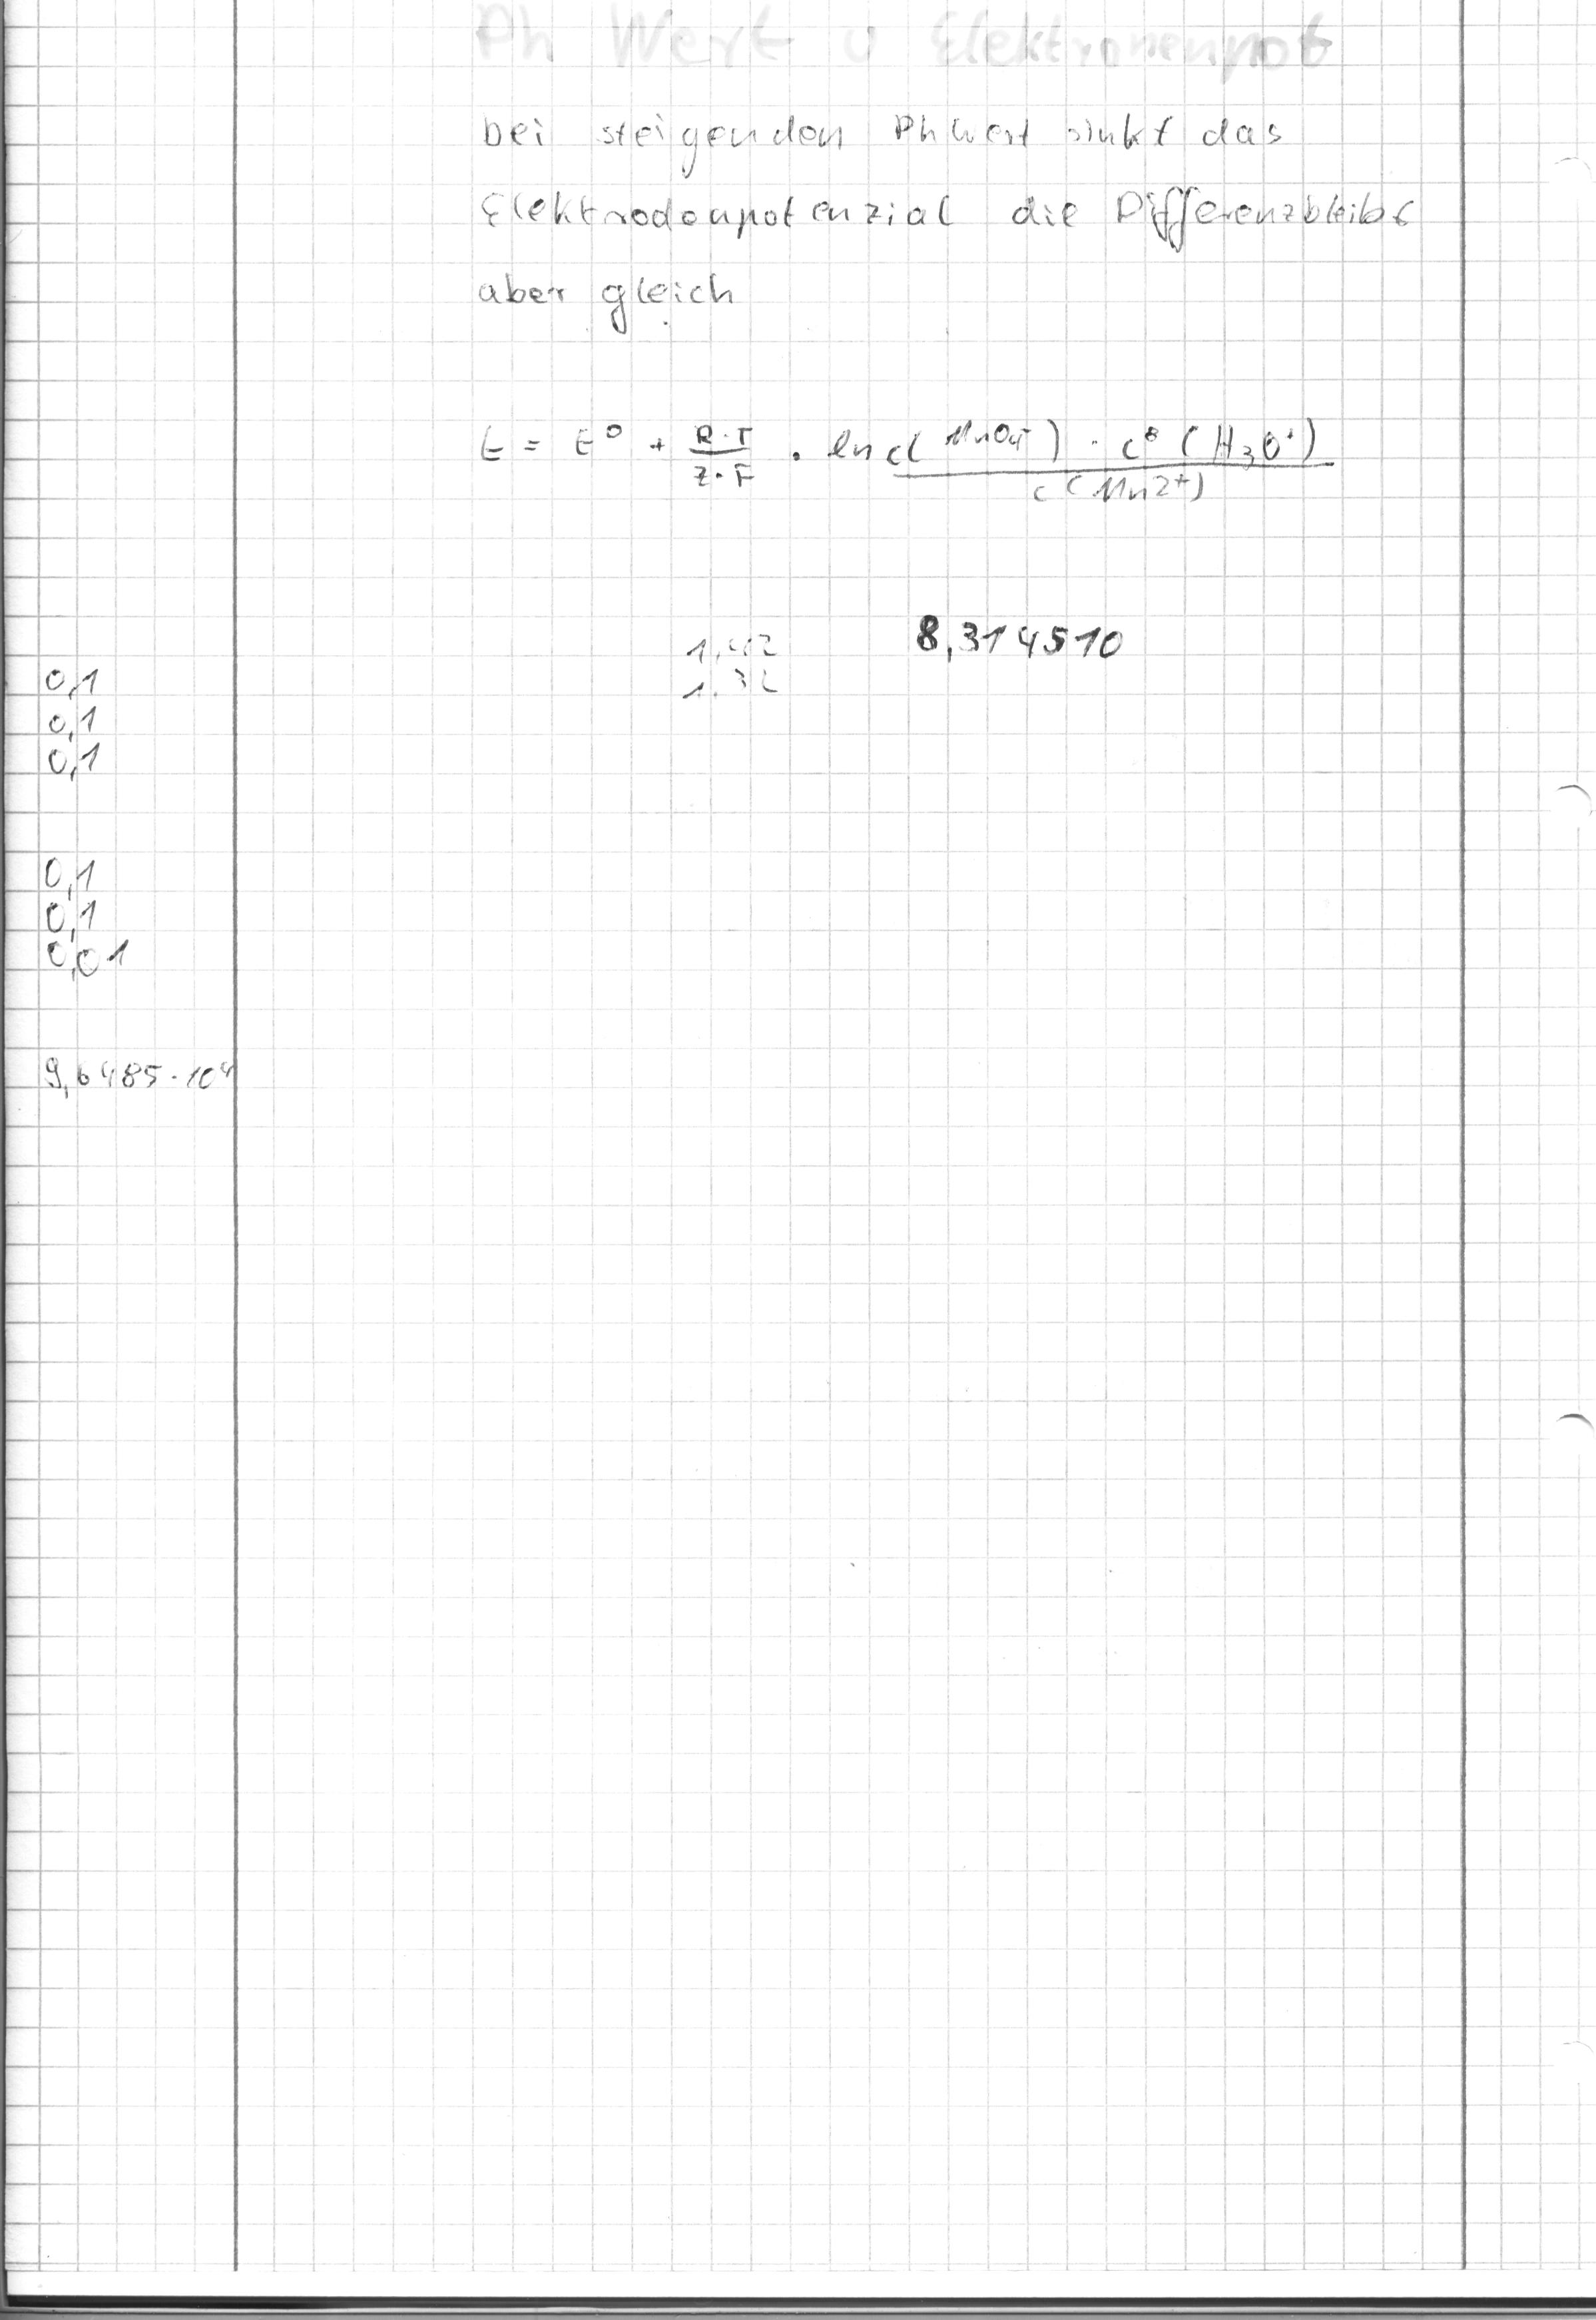 Ph Wert u Elektronenpot
bei steigenden PhWert sinkt das
Elektrodenpotenzial die Differenz bleibt
aber gleich
E = E⁰ + R·T / z·F · ln c(MnO₄⁻) · c⁸(H₃O⁺) / c(Mn2+)
1,42
1,32
8,314510
0,1
0,1
0,1
0,1
0,1
0,01
9,6485·10⁴